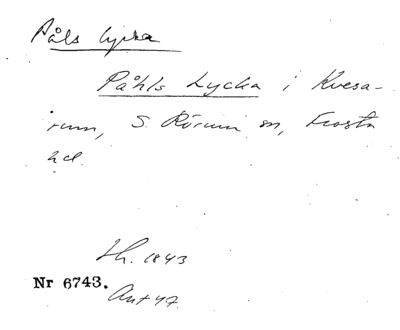 Påls lycka
Påhls Lycka i Kvesa-
rum, S. Rörum sn, Frosta
hd.
Lh. 1843
Nr 6743.
Ant 47.